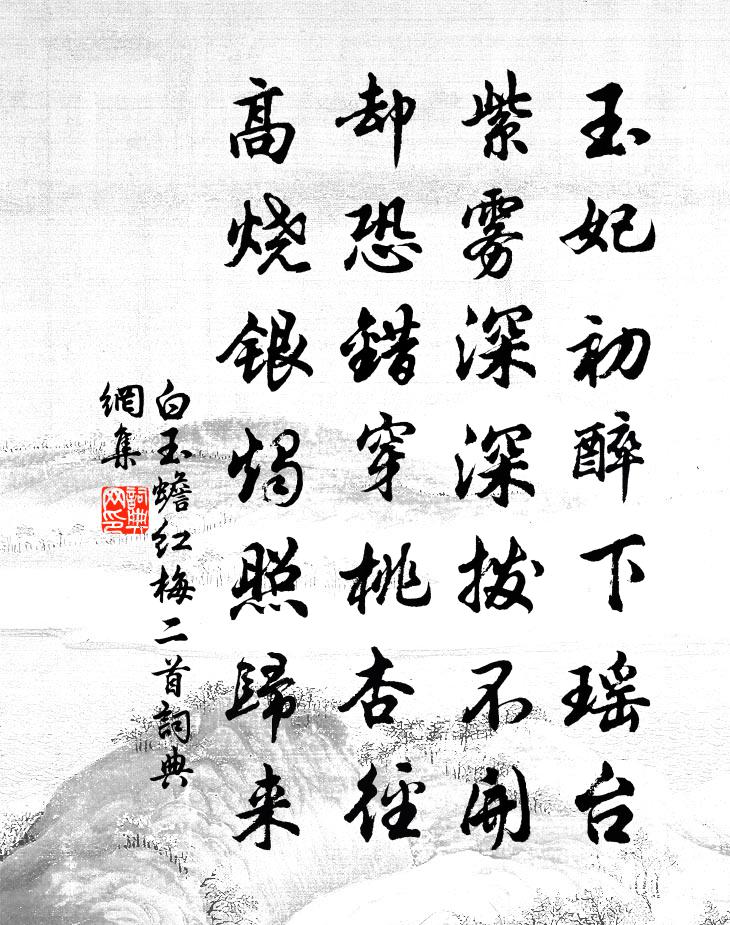 玉妃初醉下瑶台
紫雾深深拨不開
却恐錯穿桃杏徑
高烧银烛照歸来
白玉蟾红梅二首詞典
網集
詞典
网印